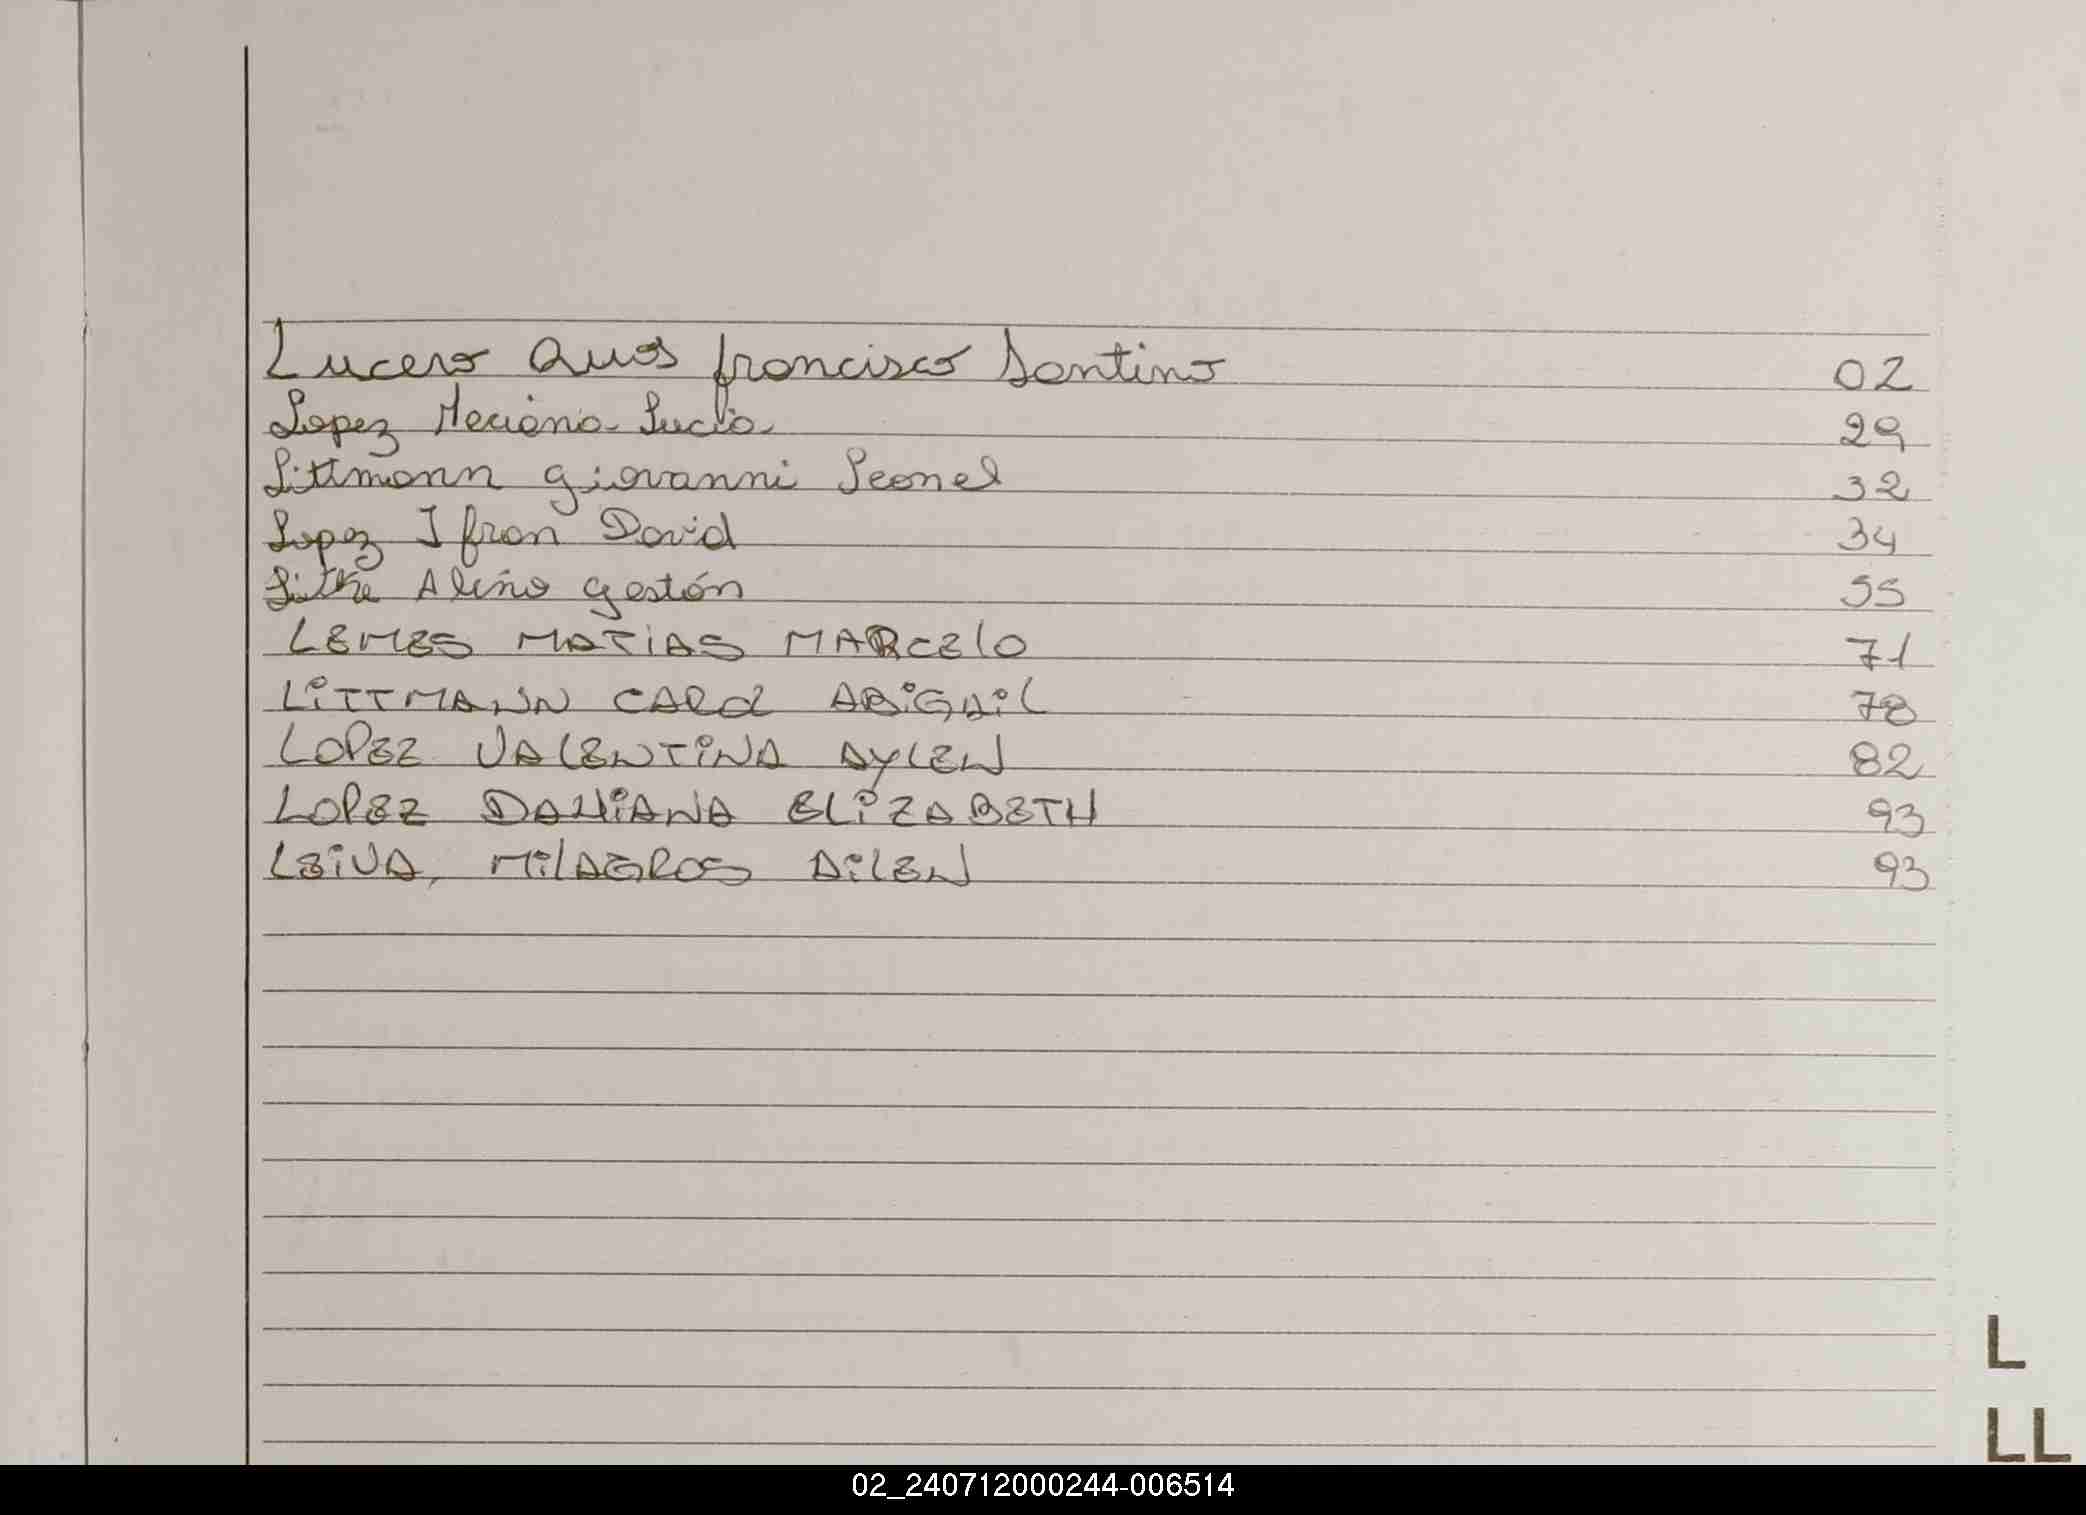 Lucero Quos francisco Santino 02
Lopez Mariana Lucia 29
Littmann giovanni Leonel 32
Lopez Ifran David 34
Litke gastón 55
LEMES MATIAS MARCELO 71
LITTMANN CAROL ABIGAIL 78
LOPEZ VALENTINA AYLEN 82
LOPEZ DAHIANA ELIZABETH 93
LEIVA, MILAGROS AILEN 93
L
LL
02_240712000244-006514